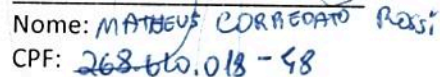 Nome: MATHEUS CORREDATO ROSSi
CPF: 268.610.018-48